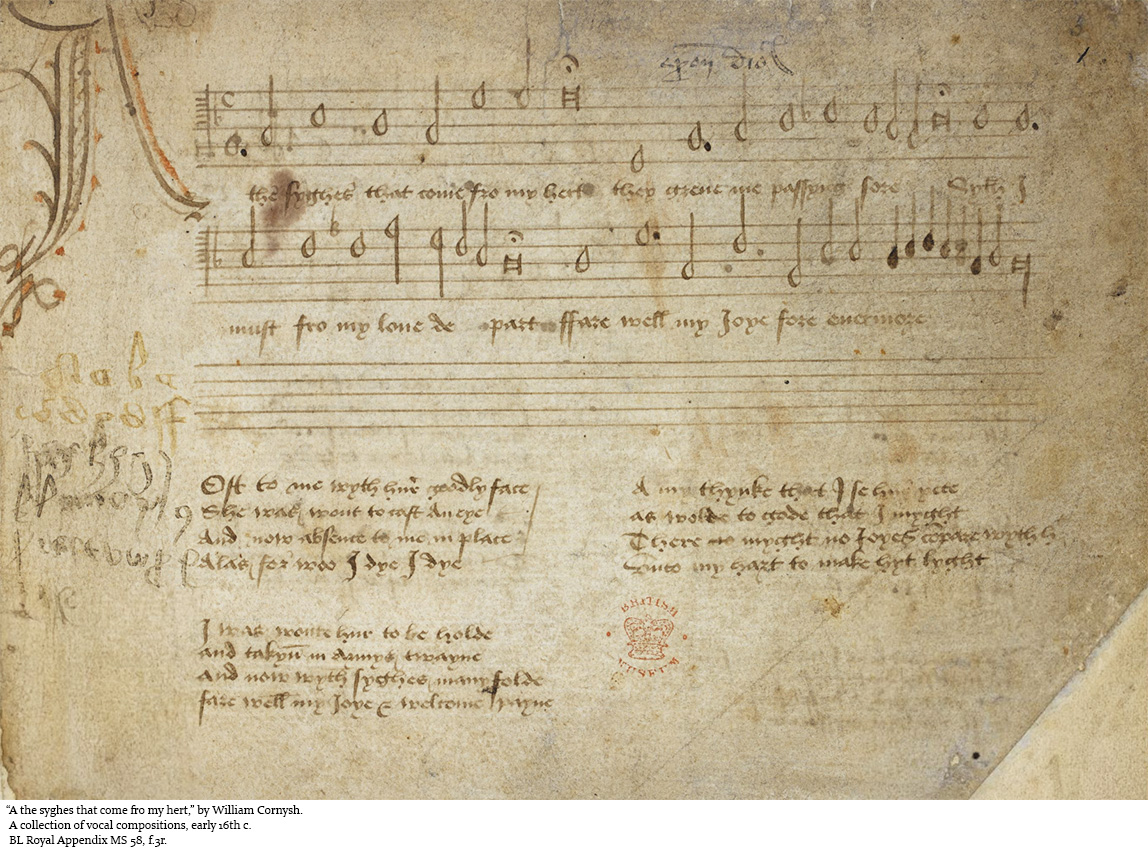 A
the syghes that come fro my hert they greue me passyng sore Syth I
must fro my loue de part ffare well my Joye fore euermore
Oft to me wyth hur goodly face
She was wont to cast an eye
And now absence to me in place
Alas for woo I dye I dye
I was wonte hur to be holde
and takyn in armys twayne
And now wyth syghes many folde
fare well my Joye & welcome payne
A my thynke that I se hur yete
as wolde to gode that I myght
There myght no Joyes compare wyth h
Unto my hart to make hyt lyght
BRITISH
MUSEUM
“A the syghes that come fro my hert,” by William Cornysh.
A collection of vocal compositions, early 16th c.
BL Royal Appendix MS 58, f.3r.